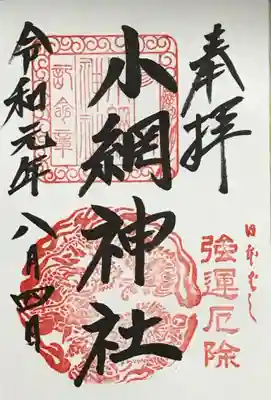 奉拝
日本ばし
強運厄除
小網神社
令和元年
八月四日